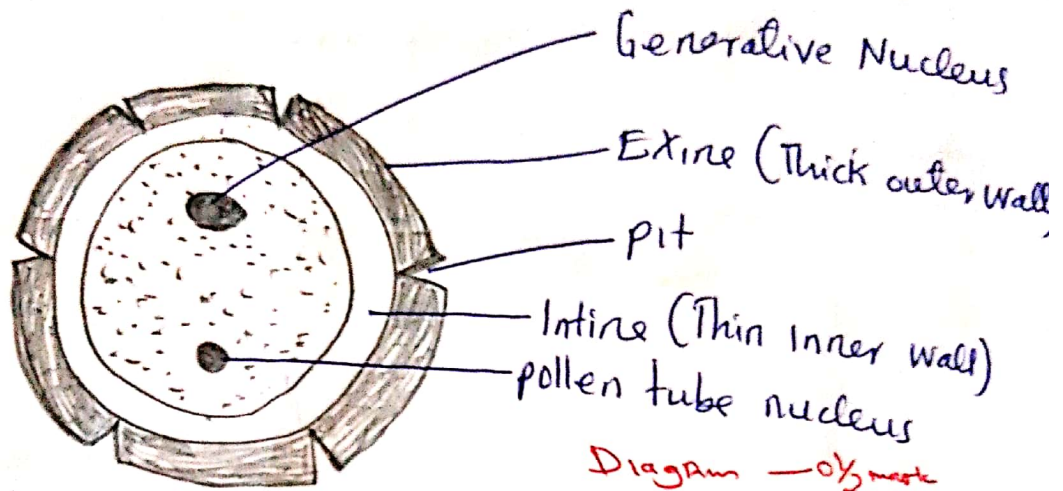 Generative Nucleus
Exine (Thick outer wall)
pit
Intine (Thin Inner wall)
pollen tube nucleus
Diagram — 0½ mark